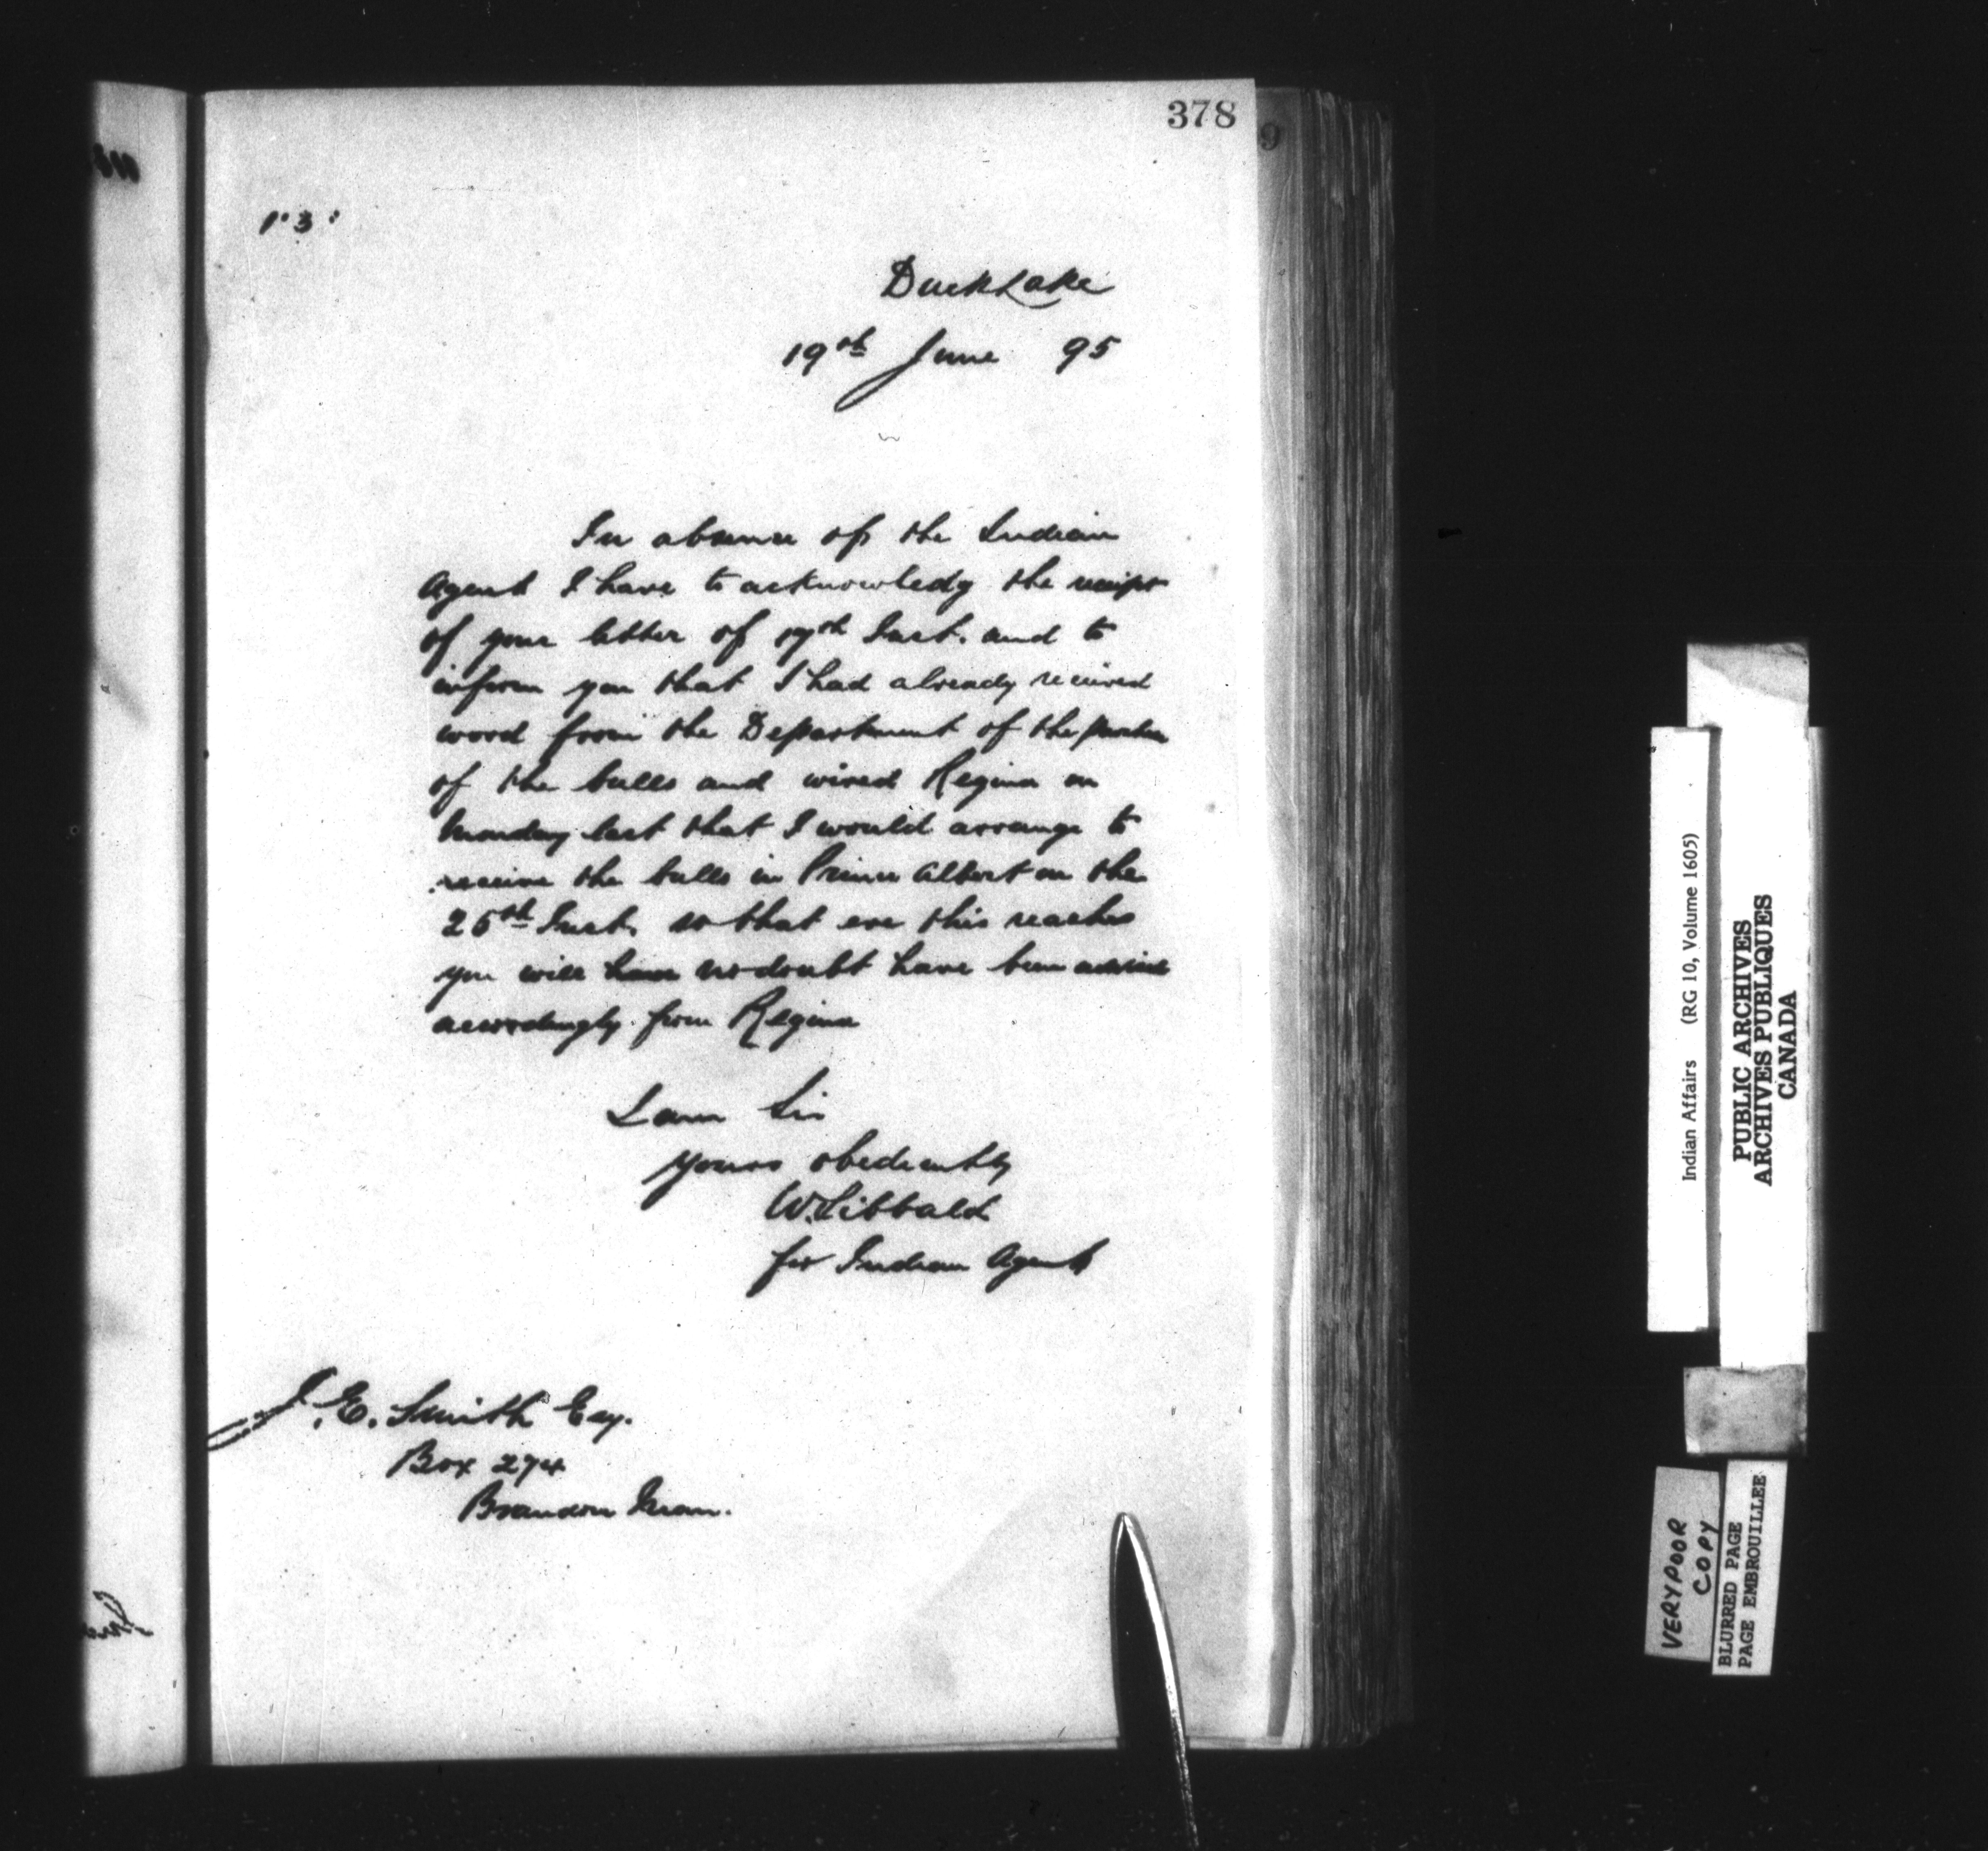 378
9
1' 3'
Duck Lake
19th June 95
In absence of the Indian
Agent I have to acknowledg the receipt
of your letter of 17th Inst. and to
inform you that I had already received
word from the Department of the
of the bulls and wired Regina on
Monday last that I would arrange to
receive the bulls in Prince Albert on the
Inst. so that ere this reaches
you will have no doubt have been
accordingly from Regina
I am Sir
Yours obediently
W. Sibbald
for Indian Agent
J. E. Smith Esq.
Box 274
Brandon Man.
Indian Affairs (RG 10, Volume 1605)
PUBLIC ARCHIVES
ARCHIVES PUBLIQUES
CANADA
VERY POOR
COPY
BLURRED PAGE
PAGE EMBROUILLEE